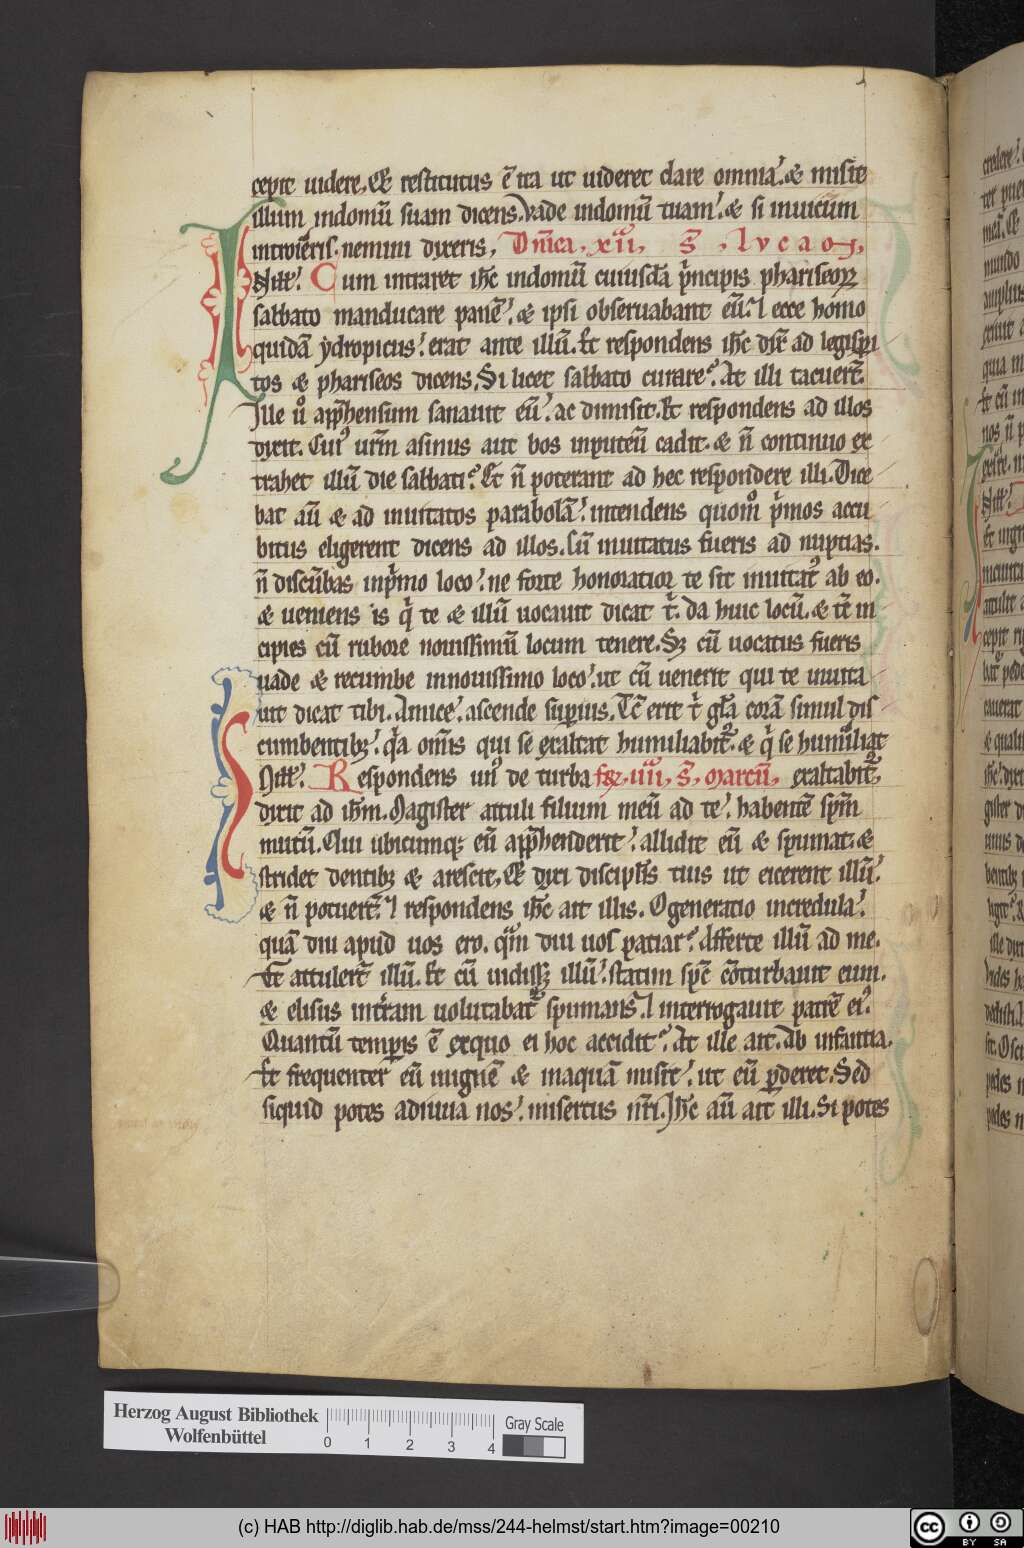 cepit uidere, Et restitutus ē ita ut uideret clare omnia. & misit
illum indomū suam dicens, Vade indomū tuam. & si inuicum
introieris. nemini dixeris, Dn̄ica, xiii, S̄, lucam,
N ill'. Cum intraret ih̄c indomū cuiusdā p̄ncipis phariseoꝝ
sabbato manducare panē. & ipsi obseruabant eū. ⁊ ecce homo
quidā ydropicus. erat ante illū. Et respondens ih̄c dix̄ ad legisperi
tos & phariseos dicens, Si licet sabbato curare. At illi tacuer̄t.
Ille uͦ app̄hensum sanauit eū. ac dimisit. Et respondens ad illos
dixit. Cui' ur̄m asinus aut bos inputeū cadit. & n̄ continuo ex
trahet illū die sabbati. Et n̄ poterant ad hec respondere illi. Dice
bat aū & ad inuitatos parabolā. intendens quomͦ p̄mos accu
bitus eligerent dicens ad illos. Cū inuitatus fueris ad nuptias.
n̄ discūbas inp̄mo loco. ne forte honoratior te sit inuitat' ab eo.
& ueniens is q̄ te & illū uocauit dicat t̄. da huic locū. & tē in
cipies cū rubore nouissimū locum tenere. Sꝫ cū uocatus fueris
uade & recumbe innouissimo loco. ut cū uenerit qui te inuita
uit dicat tibi. Amice. ascende sup̄ius. Tē erit t̄ gl̄a corā simul dis
cumbentibꝫ. q̄a om̄is qui se exaltat humiliabit'. & q̄ se humiliat
N ill'. Respondens un' de turba fer, iiii, S̄, Marcū, exaltabit',
dixit ad ih̄m. Magister attuli filium meū ad te. habentē sp̄m
mutū. Qui ubicumqꝫ eū app̄henderit. allidit eū & spumat. &
stridet dentibꝫ & arescit, Et dixi discipl̄is tuis ut eicerent illū.
& n̄ potuer̄t. ⁊ respondens ih̄c ait illis. O generatio incredula.
quā diu apud uos ero. qm̄ diu uos patiar. Afferte illū ad me.
Et attuler̄t illū. Et cū uidissꝫ illū. statim sp̄c cōturbauit eum.
& elisus int̄ram uolutabat' spumans. ⁊ interrogauit patrē ei'.
Quantū temporis ē exquo ei hoc accidit. At ille ait. Ab infantia.
Et frequenter eū inignē & inaquā misit. ut eū ꝑderet. Sed
siquid potes adiuua nos. misertus n̄ri. Ih̄c aū ait illi. Si potes
Herzog August Bibliothek
Wolfenbüttel
0 1 2 3 4
Gray Scale
(c) HAB http://diglib.hab.de/mss/244-helmst/start.htm?image=00210
cc BY SA